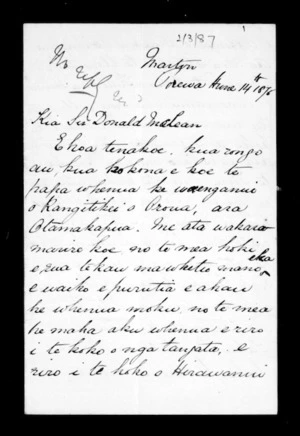 2/3/87
No
Marton
Porewa Hune 14th 1876
Kia Sir Donald McLean
E hoa tenakoe, kua rongo
au, kua hokona e koe te
papa whenua ke wanganui
o Rangitikei o Oroua, ara
Otamakapua. Me ata wakaro
mariro koe, no te mea hoki eka
e, rua tekau ma whitu mano,
e waiho e purutia e ahau
he whenua moku, no te mea
he maha aku whenua e riro
i te hoko o nga tangata, e
riro i te hoko o Hirawanui